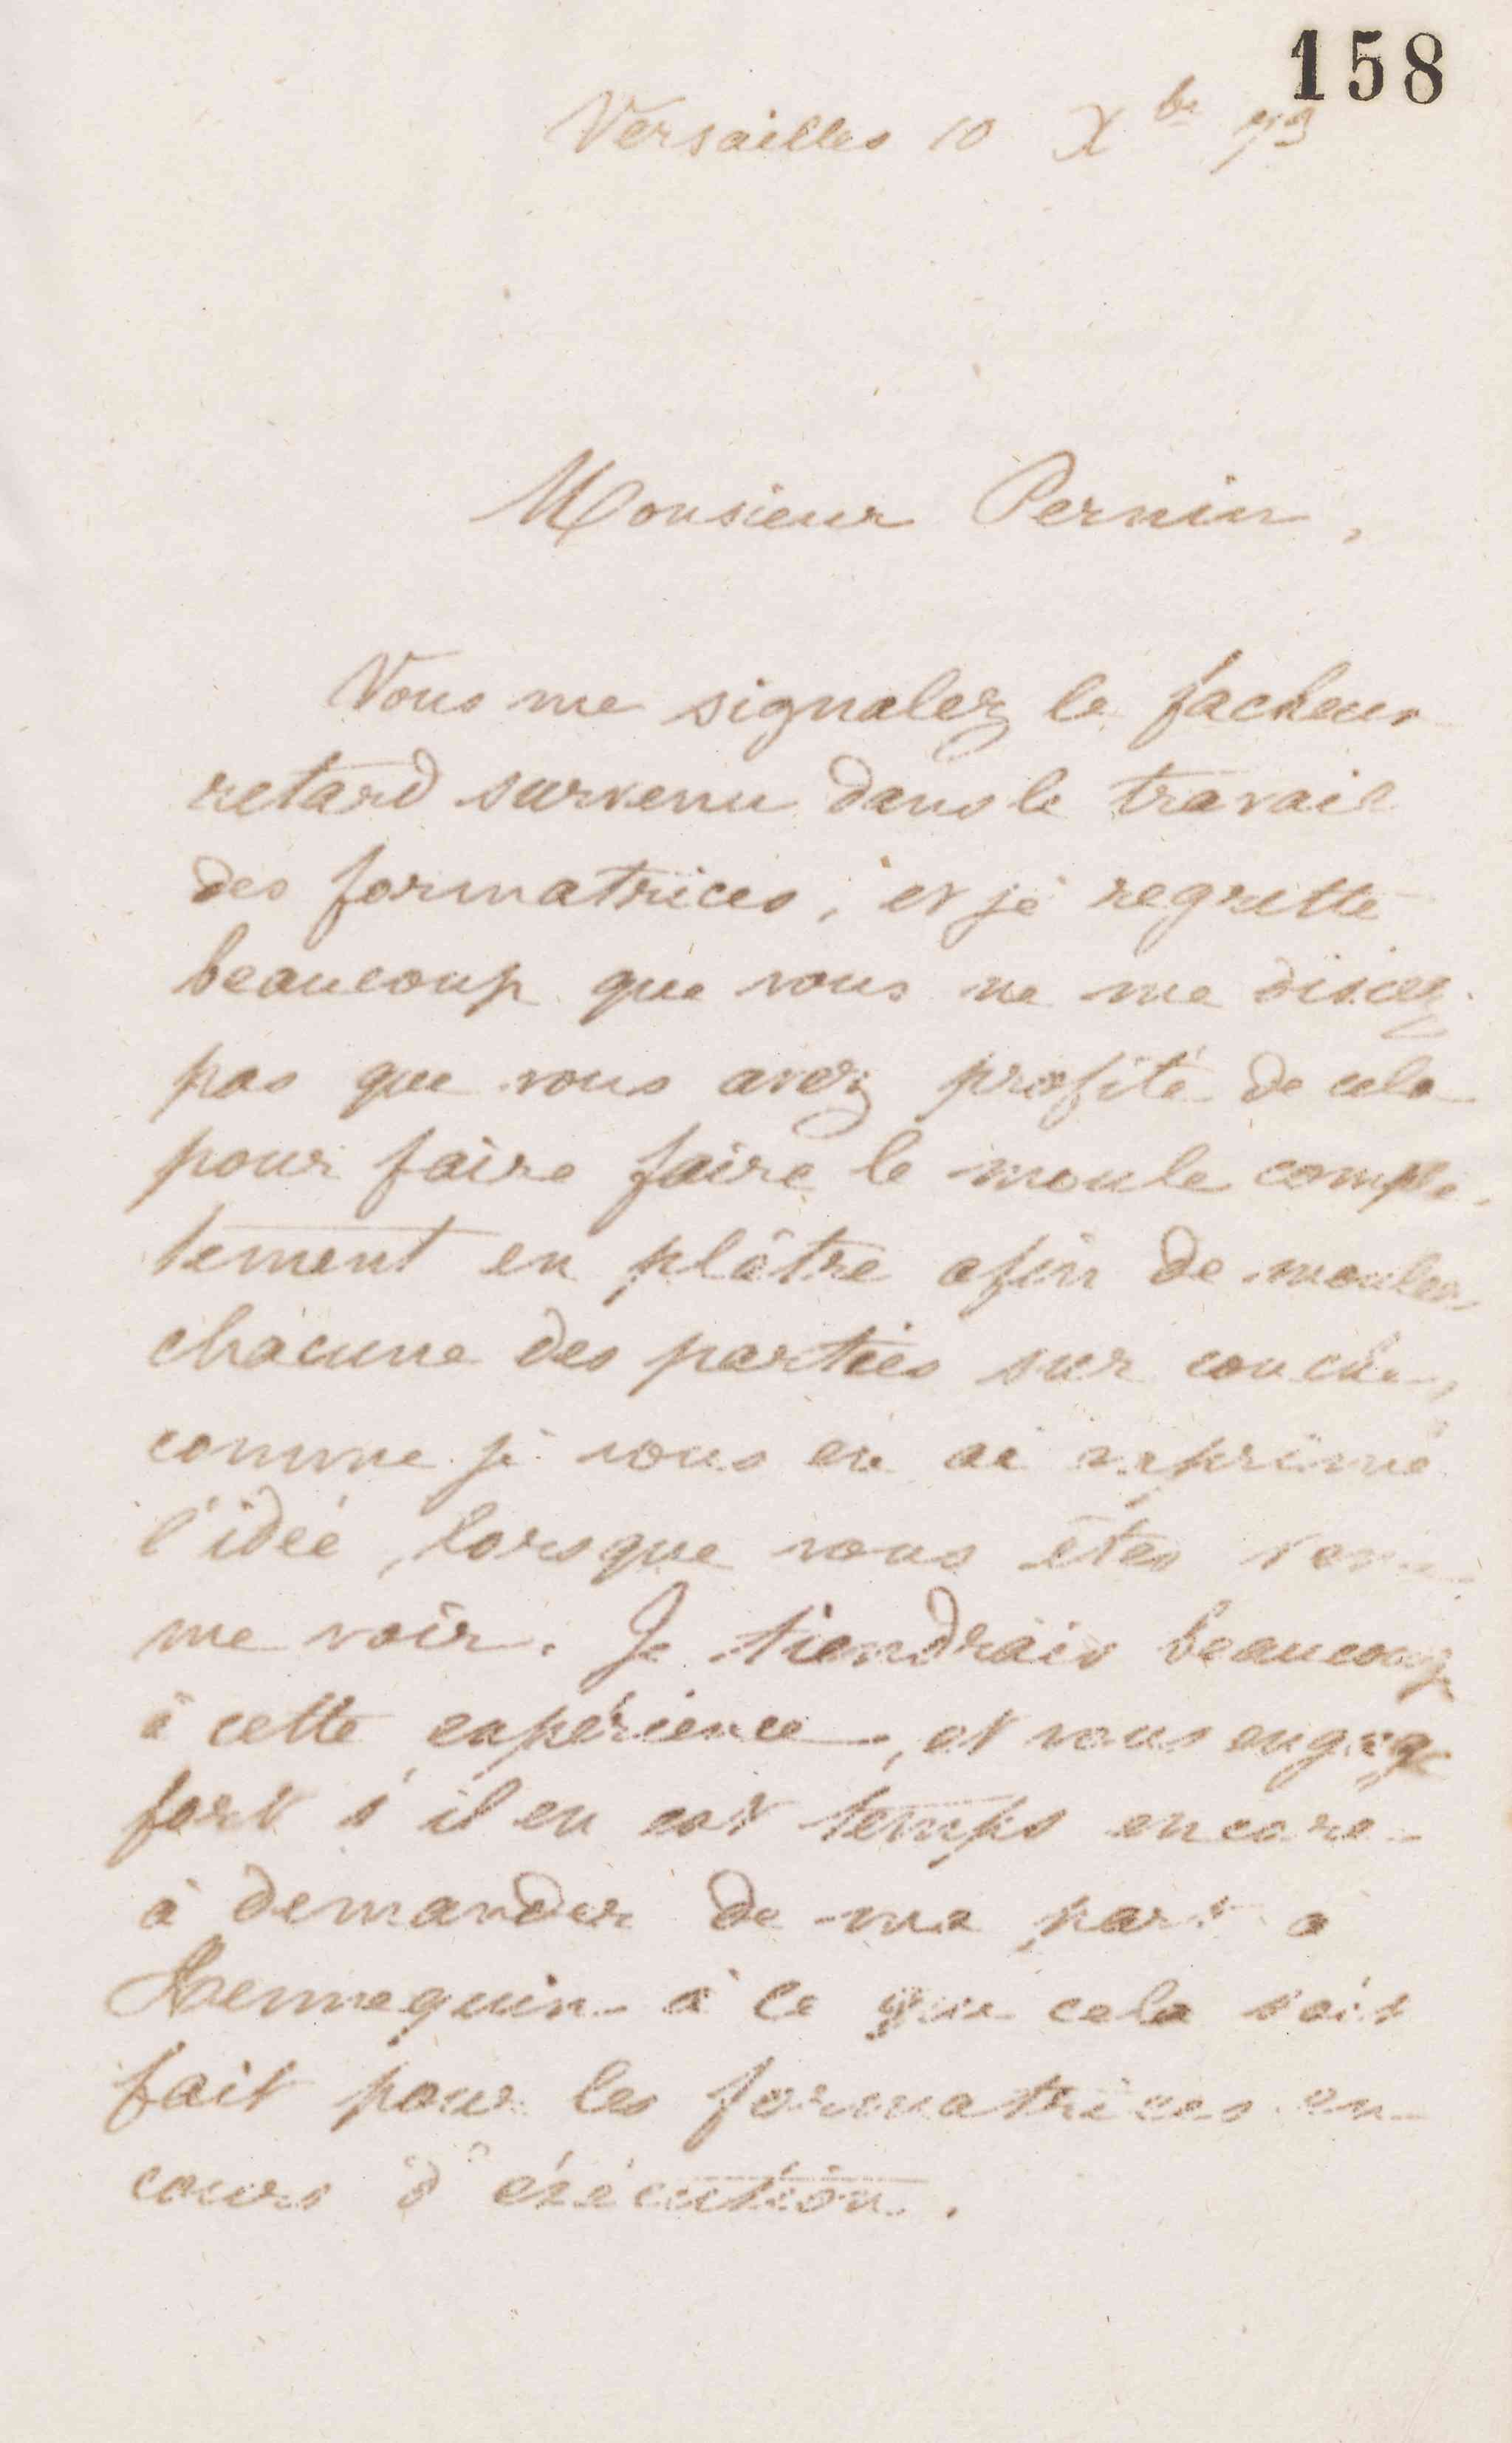 158
Versailles 10 Xbre 73
Monsieur Pernin,
Vous me signalez le facheux
retard survenu dans le travail
des formatrices, et je regrette
beaucoup que vous ne me disiez
pas que vous avez profité de cela
pour faire faire le moule complè-
tement en plâtre afin de mouler
chacune des parties sur couche,
comme je vous en ai exprimé
l'idée, lorsque vous êtes venu
me voir. Je tiendrais beaucoup
à cette expérience, et vous engage
fort s'il en est temps encore
à demander de ma part à
Hennequin à ce que cela soit
fait pour les formatrices en
cours d'éxécution.